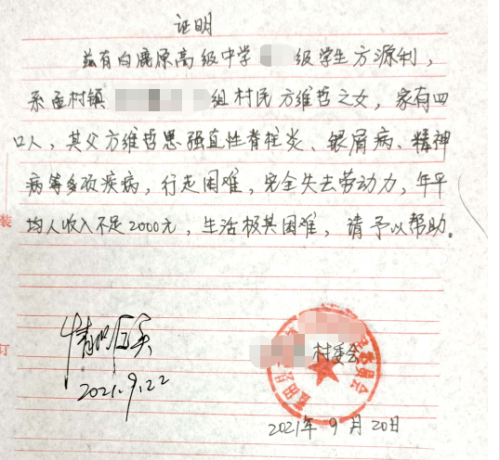 证明
兹有白鹿原高级中学 级学生方源利，
系孟村镇 组村民方维哲之女，家有四
口人，其父方维哲患强直性脊柱炎、银屑病、精神
病等多项疾病，行走困难，完全失去劳动力，年平
装
均人收入不足2000元，生活极其困难，请予以帮助。
订
情况属实
2021.9.22
村委会
2021年9月20日